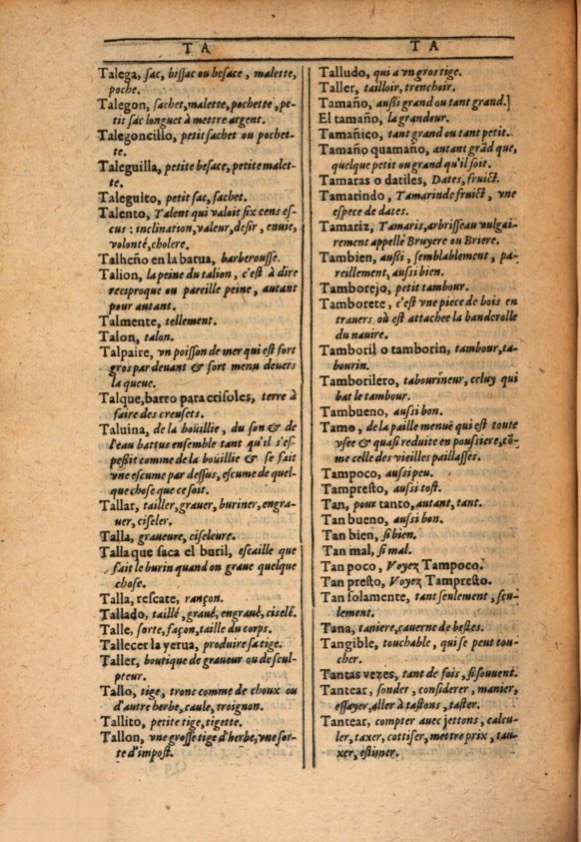 TA
TA
Talega, sac, bissac ou besace, malette,
poche.
Talegon, sachet, malette, pochette, pe-
tit sac longuet à mettre argent.
Talegoncillo, petit sachet ou pochet-
te.
Taleguilla, petite besace, petite malet-
te.
Taleguito, petit sac, sachet.
Talento, Talent qui valoit six cens es-
cus: inclination, valeur, desir, enuie,
volonté, cholere.
Talheño en la bacua, barberousse.
Talion, la peine du talion, c'est à dire
reciproque ou pareille peine, autant
pour autant.
Talmente, tellement.
Talon, talon.
Talpaire, vn poisson de mer qui est fort
gros par deuant & fort menu deuers
la queue.
Talque, barro para crisoles, terre à
faire des creusets.
Taluina, de la boüillie, du son & de
l'eau battus ensemble tant qu'il s'es-
pessit comme de la boüillie & se fait
vne escume par dessus, escume de quel-
que chose que ce soit.
Tallar, tailler, grauer, buriner, engra-
uer, ciseler.
Talla, graueure, ciseleure.
Talla que saca el buril, escaille que
fait le burin quand on graue quelque
chose.
Talla, rescate, rançon.
Tallado, taillé, graué, engraué, ciselé.
Talle, sorte, façon, taille du corps.
Tallecer la yerua, produire sa tige.
Taller, boutique de graueur ou de scul-
pteur.
Tallo, tige, tronc comme de choux ou
d'autre herbe, caule, troignon.
Tallito, petite tige, tigette.
Tallon, vne grosse tige d'herbe, vne sor-
te d'impost.
Talludo, qui a vn gros tige.
Taller, tailloir, trenchoir.
Tamaño, aussi grand ou tant grand.]
El tamaño, la grandeur.
Tamañico, tant grand ou tant petit.
Tamaño quamaño, autant grãd que,
quelque petit ou grand qu'il soit.
Tamaras o datiles, Dates, fruict.
Tamarindo, Tamarinde fruict, vne
espece de dates.
Tamariz, Tamaris, arbrisseau vulgai-
rement appellé Bruyere ou Briere.
Tambien, aussi, semblablement, pa-
reillement, aussi bien.
Tamborejo, petit tambour.
Tamborete, c'est vne piece de bois en
trauers où est attachee la banderolle
du nauire.
Tamboril o tamborin, tambour, ta-
bourin.
Tamborilero, tabourineur, celuy qui
bat le tambour.
Tambueno, aussi bon.
Tamo, de la paille menuë qui est toute
vsee & quasi reduite en poussiere, cõ-
me celle des vieilles paillasses.
Tampoco, aussi peu.
Tampresto, aussi tost.
Tan, pour tanto, autant, tant.
Tan bueno, aussi bon.
Tan bien, si bien.
Tan mal, si mal.
Tan poco, Voyez Tampoco.
Tan presto, Voyez Tampresto.
Tan solamente, tant seulement, seu-
lement.
Tana, taniere, cauerne de bestes.
Tangible, touchable, qui se peut tou-
cher.
Tantas vezes, tant de fois, si souuent.
Tantear, sonder, considerer, manier,
essayer, aller à tastons, taster.
Tantear, compter auec jettons, calcu-
ler, taxer, cottiser, mettre prix, tau-
xer, estimer.